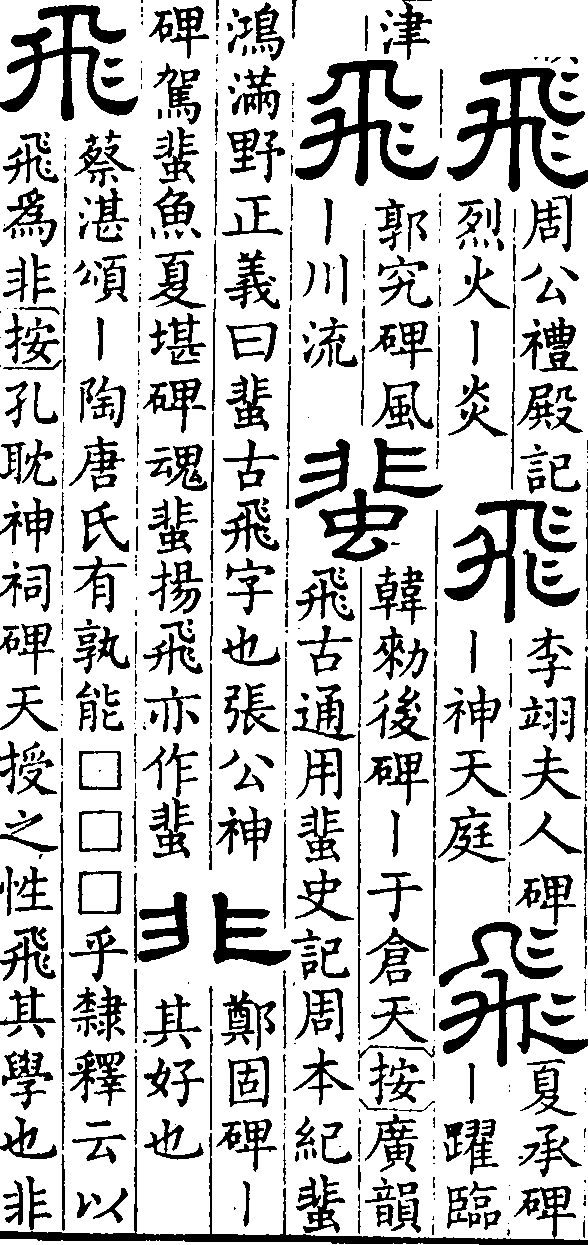 飛
周公禮殿記
烈火丨炎
飛
李翊夫人碑
丨神天庭
飛
夏承碑
丨躍臨
津
飛
郭究碑風
丨川流
蜚
韓勑後碑丨于倉天按廣韻
飛古通用蜚史記周本紀蜚
鴻滿野正義曰蜚古飛字也張公神
碑駕蜚魚夏堪碑魂蜚揚飛亦作蜚
非
鄭固碑丨
其好也
飛
蔡湛頌丨陶唐氏有孰能□□□乎隸釋云以
飛爲非按孔耽神祠碑天授之性飛其學也非